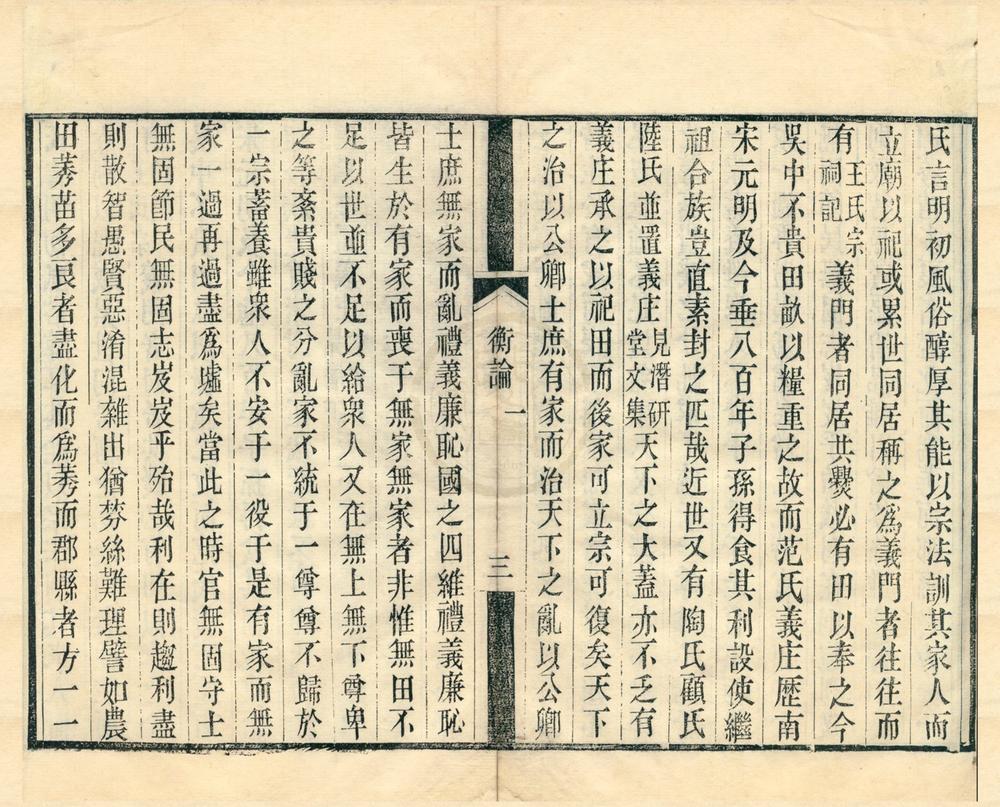 氏言明初風俗醇厚其能以宗法訓其家人而
立廟以祀或累世同居稱之爲義門者往往而
有王氏宗祠記義門者同居共爨必有田以奉之今
吳中不貴田畝以糧重之故而范氏義庄歷南
宋元明及今垂八百年子孫得食其利設使繼
祖合族豈直素封之匹哉近世又有陶氏顧氏
陸氏並置義庄見潛研堂文集天下之大蓋亦不乏有
義庄承之以祀田而後家可立宗可復矣天下
之治以公卿士庶有家而治天下之亂以公卿
衡論一 三
士庶無家而亂禮義廉恥國之四維禮義廉恥
皆生於有家而喪于無家無家者非惟無田不
足以世並不足以給衆人又在無上無下尊卑
之等紊貴賤之分亂家不統于一尊尊不歸於
一宗蓄養雖衆人不安于一役于是有家而無
家一過再過盡爲墟矣當此之時官無固守士
無固節民無固志岌岌乎殆哉利在則趨利盡
則散智愚賢惡淆混雜出猶棼絲難理譬如農
田莠苗多良者盡化而爲莠而郡縣者方一一